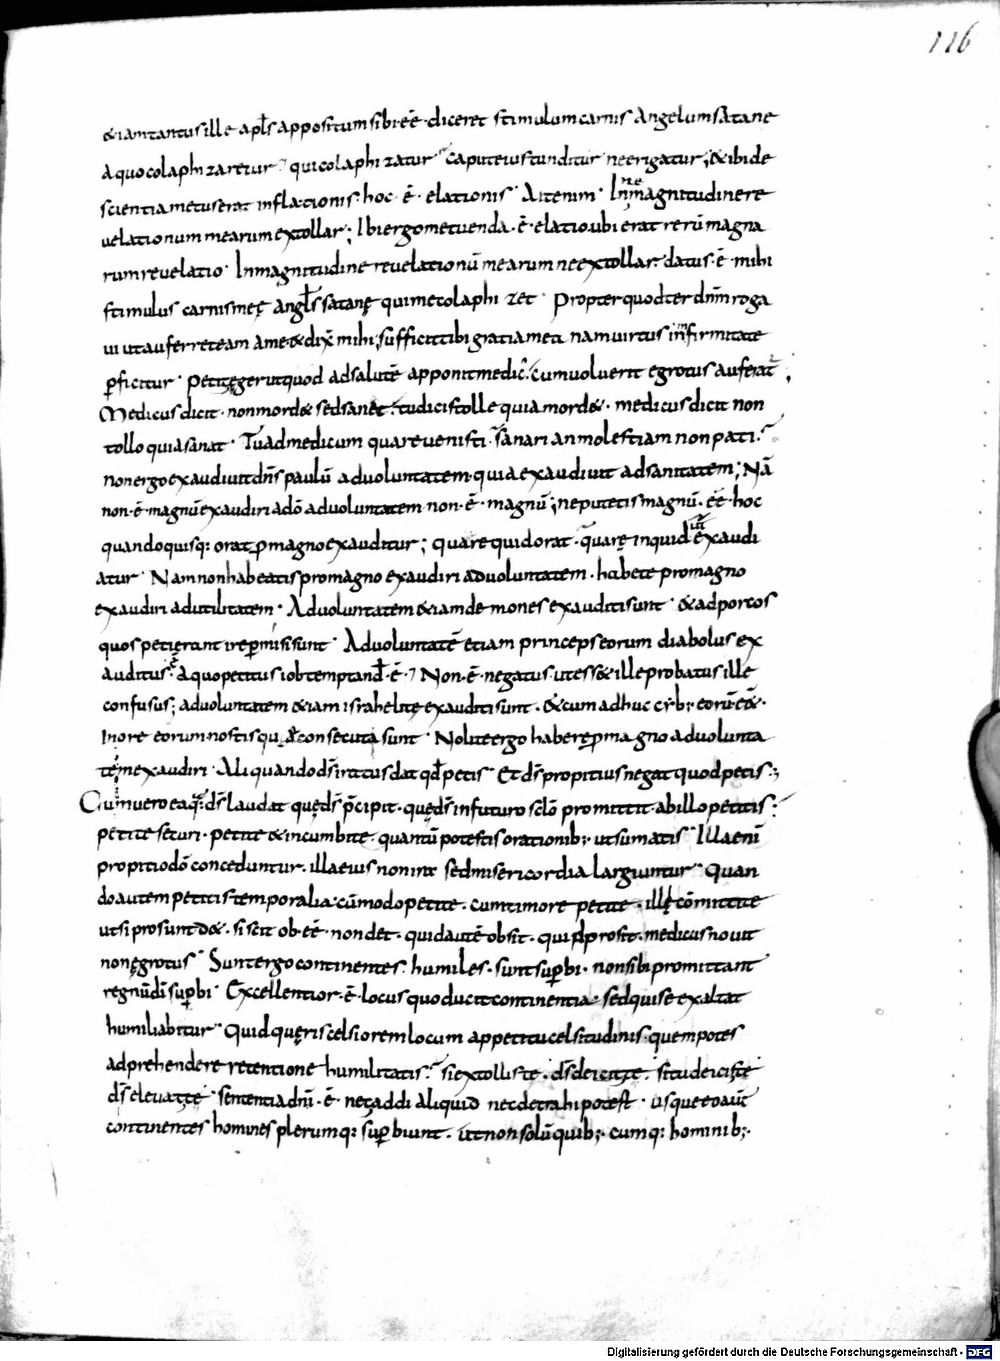 116
&iam tantus ille apl̄s appositum sibi eē diceret stimulum carnis angelum satane
a quo colaphizaretur qui colaphizatur caput eius tunditur ne erigatur; & ibi de
scientia metus erat inflationis hoc ē elationis Ait enim In magnitudine ne re
uelationum mearum extollar; Ibi ergo metuenda ē elatio ubi erat rerū magna
rum reuelatio In magnitudine reuelationū mearum ne extollar datus ē mihi
stimulus carnis meę angl̄s satanę qui me colaphizet Propter quod ter dnm̄ roga
ui ut auferret eam a me & dix̄ mihi; sufficit tibi gratia mea nam uirtus in firmitate
ꝑficitur Petit ęger ut quod ad salutē apponit medic; cum uoluerit egrotus auferat;
Medicus dicit non mord& sed sanet tu dicis tolle quia mord& medicus dicit non
tollo quia sanat Tu ad medicum quare uenisti sanari an molestiam non pati
non ergo exaudiuit dn̄s paulū ad uoluntatem quia exaudiuit ad sanitatem; Nā
non ē magnū exaudiri a dō ad uoluntatem non ē magnū; ne putetis magnū eē hoc
quando quisq: orat ꝓ magno exauditur; quare quid orat quare inquid exaudi
atur Nam non habeatis pro magno exaudiri ad uoluntatem habete pro magno
exaudiri ad utilitatem Ad uoluntatem &iam demones exauditi sunt & ad porcos
quos petierant ire ꝑmisi sunt Ad uoluntatē etiam princeps eorum diabolus ex
auditus ē a quo petitus iob temptand ē Non ē negatus ut ess& ille probatus ille
confusus; ad uoluntatem &iam israhelitę exauditi sunt & cum adhuc cyb; eorū eēt
In ore eorum nostis quę consecuta sunt Nolite ergo habere ꝓ magno ad uolunta
tem exaudiri Aliquando dš iratus dat qd̄ petis Et dš propitius negat quod petis;
Cum uero ea q: dš laudat quę dš p̄cipit quę dš in futuro sclō promittit ab illo petitis
petite securi petite & incumbite quantū potestis orationib; ut sumatis Illa enī
propitio dō conceduntur illa eius non ira sed misericordia largiuntur Quan
do autem petitis temporalia cū modo petite cum timore petite illę cōmittite
ut si prosunt d& si scit ob eē non det quid autē obsit quid prosit medicus nouit
non ęgrotus Sunt ergo continentes humiles sunt suꝑbi non sibi promittant
regnū dī suꝑbi Excellentior ē locus quo ducit continentia sed qui se exaltat
humiliabitur Quid quęris celsiorem locum appetitu celsitudinis quem potes
adprehendere retentione humilitatis si extolliste dš deicit te si tu deicis te
dš eleuat te sententia dnī ē nec addi aliquid nec detrahi potest usque eo aut̄
continentes homines plerumq: suꝑbiunt ut non solū quib; cumq: hominib;
Digitalisierung gefördert durch die Deutsche Forschungsgemeinschaft - DFG